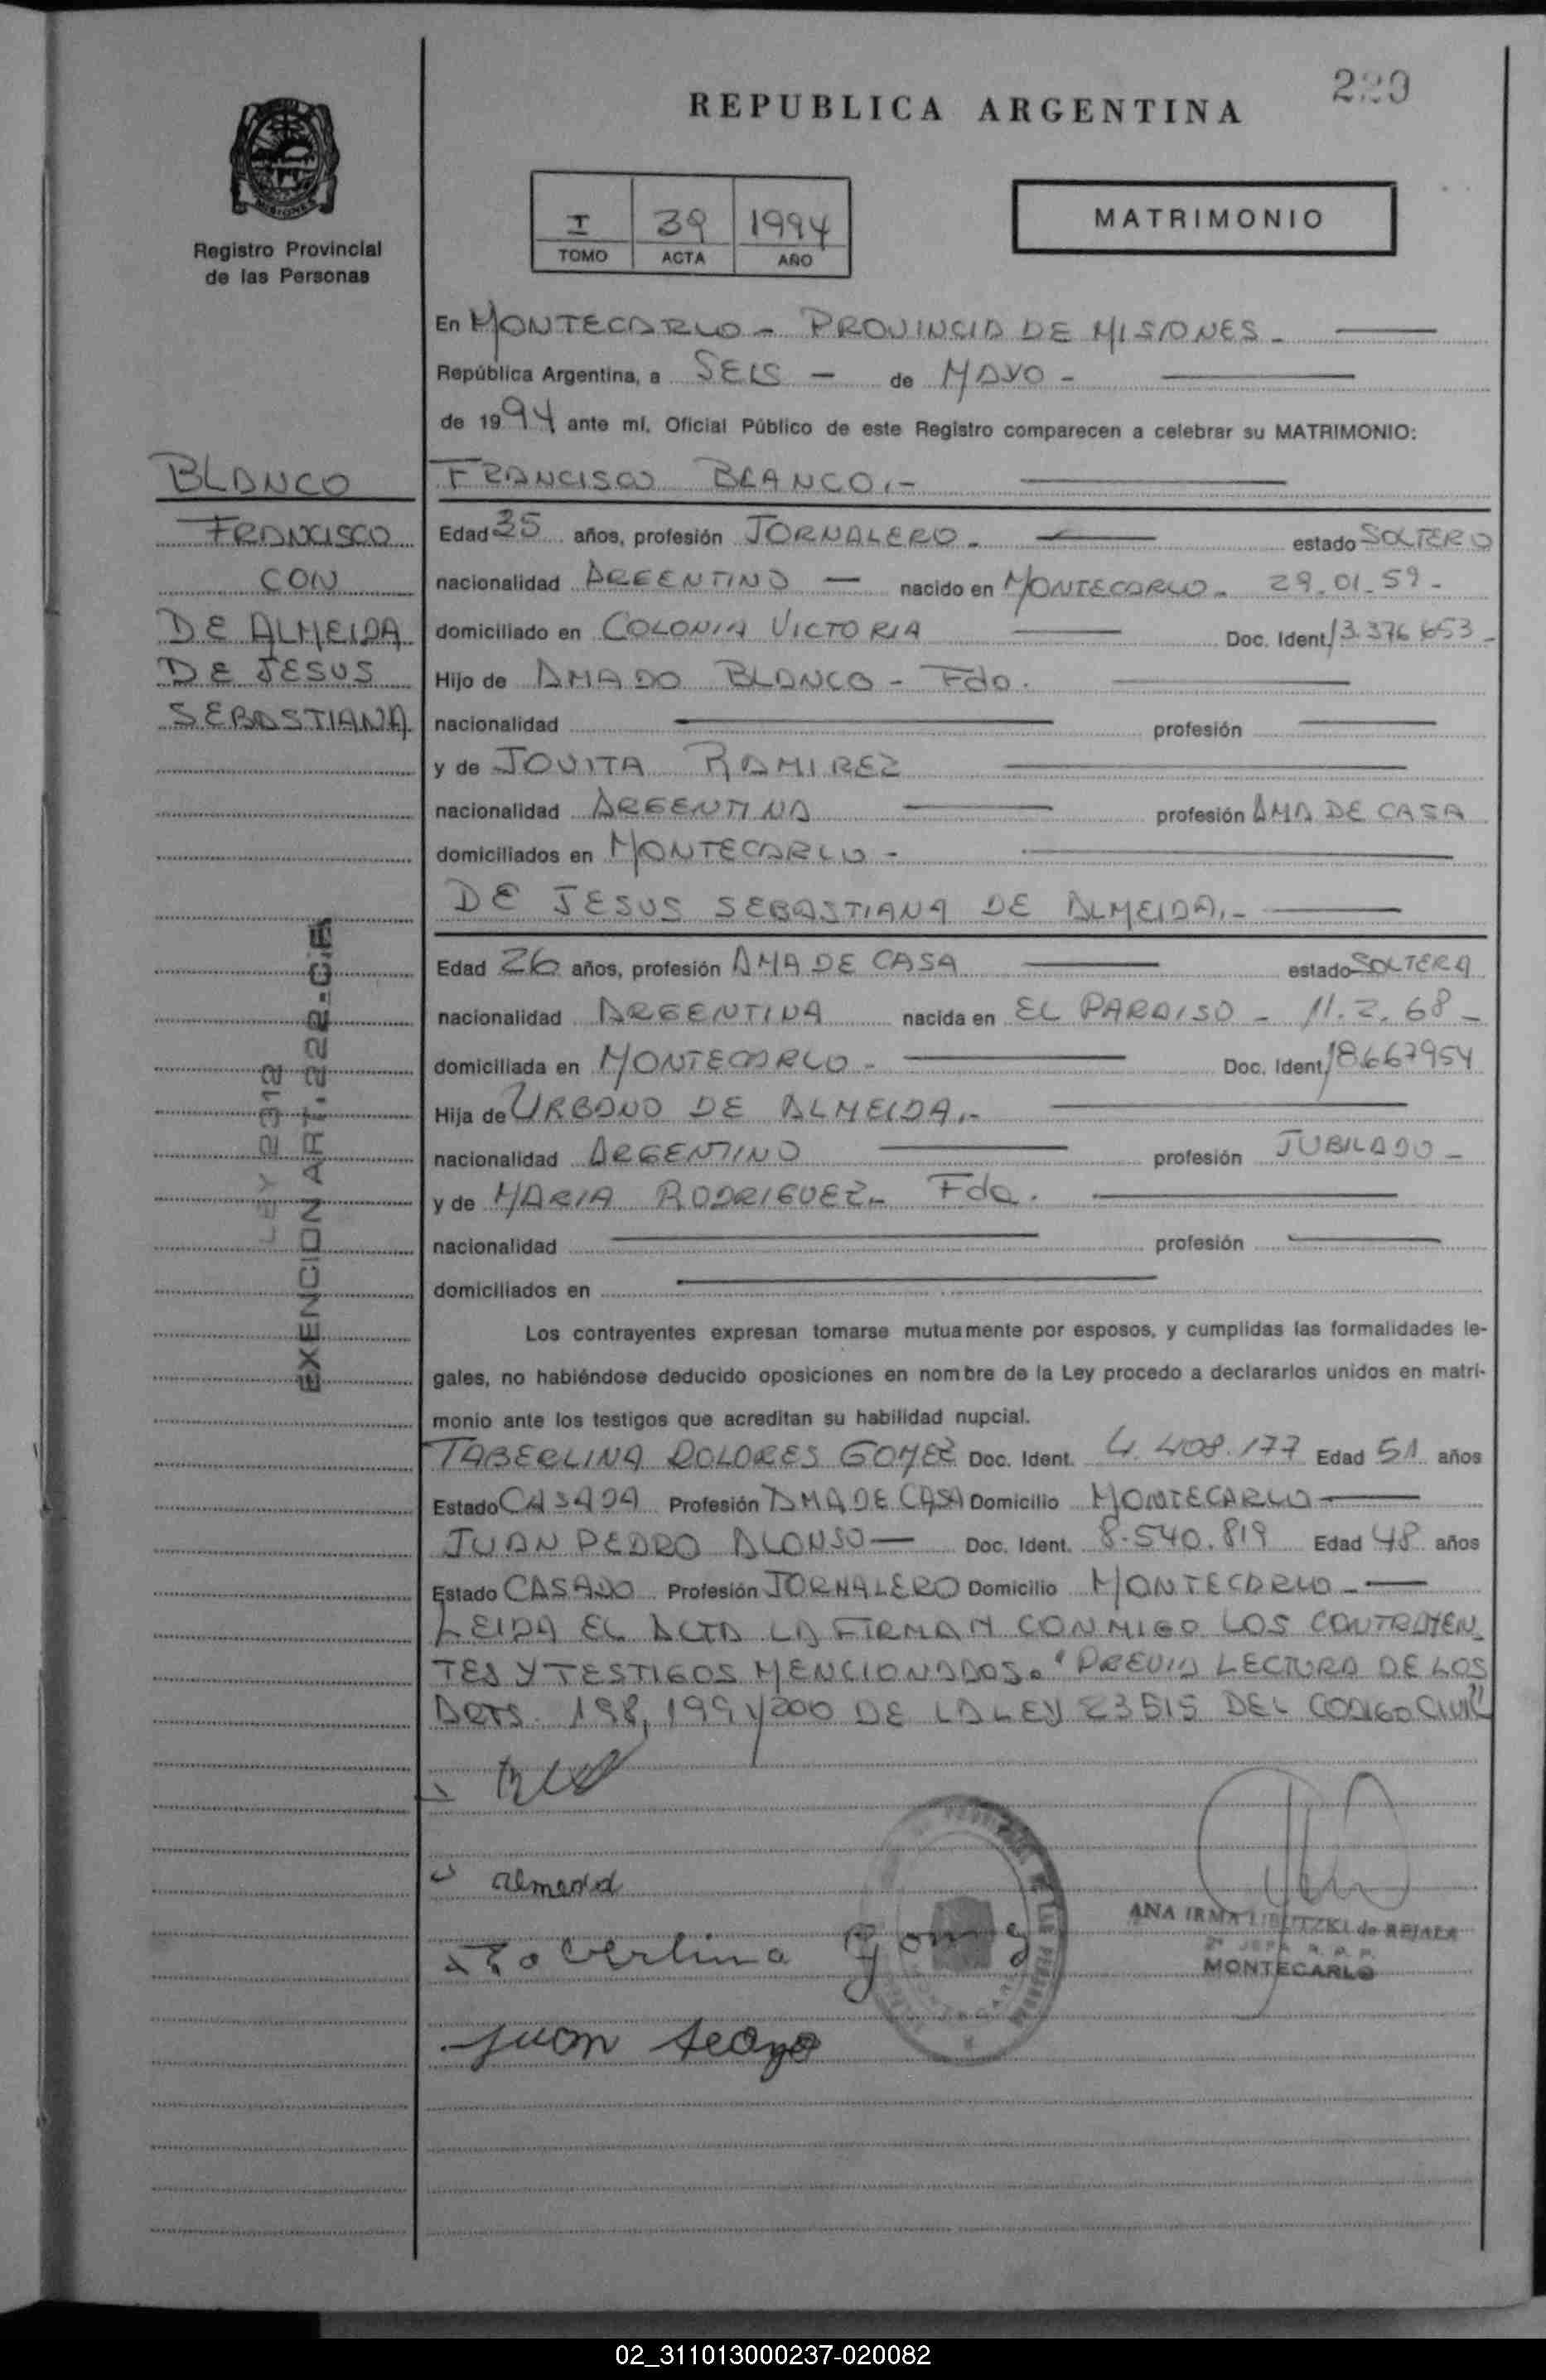 229
REPUBLICA ARGENTINA
MISIONES
Registro Provincial
de las Personas
I 39 1994
TOMO ACTA AÑO
MATRIMONIO
En MONTECARLO - PROVINCIA DE MISIONES -
República Argentina, a SEIS - de MAYO -
de 1994 ante mí, Oficial Público de este Registro comparecen a celebrar su MATRIMONIO:
BLANCO
FRANCISCO
CON
DE ALMEIDA
DE JESUS
SEBASTIANA
LEY 2312
EXENCION ART. 222-C.F.
FRANCISCO BLANCO.-
Edad 35 años, profesión JORNALERO - estado SOLTERO
nacionalidad ARGENTINO - nacido en MONTECARLO - 29.01.59-
domiciliado en COLONIA VICTORIA Doc. Ident. 13.376.653-
Hijo de AMADO BLANCO - Fdo.
nacionalidad profesión
y de JOVITA RAMIREZ
nacionalidad ARGENTINA profesión AMA DE CASA
domiciliados en MONTECARLO -
DE JESUS SEBASTIANA DE ALMEIDA.-
Edad 26 años, profesión AMA DE CASA estado SOLTERA
nacionalidad ARGENTINA nacida en EL PARAISO - 11.2.68-
domiciliada en MONTECARLO - Doc. Ident. 18.667954
Hija de URBANO DE ALMEIDA.-
nacionalidad ARGENTINO profesión JUBILADO -
y de MARIA RODRIGUEZ - Fda.
nacionalidad profesión
domiciliados en
Los contrayentes expresan tomarse mutuamente por esposos, y cumplidas las formalidades le-
gales, no habiéndose deducido oposiciones en nombre de la Ley procedo a declararlos unidos en matri-
monio ante los testigos que acreditan su habilidad nupcial.
TABERLINA DOLORES GOMEZ Doc. Ident. 4.408.177 Edad 51 años
Estado CASADA Profesión AMA DE CASA Domicilio MONTECARLO
JUAN PEDRO ALONSO Doc. Ident. 8.540.819 Edad 48 años
Estado CASADO Profesión JORNALERO Domicilio MONTECARLO -
LEIDA EL ACTA LA FIRMAN CONMIGO LOS CONTRAYEN-
TES Y TESTIGOS MENCIONADOS. "PREVIA LECTURA DE LOS
ARTS. 198, 199 Y 200 DE LA LEY 23515 DEL CODIGO CIVIL"
almeida
Taberlina Gomez
ANA IRMA de REJALA
MONTECARLO
Juan
02_311013000237-020082